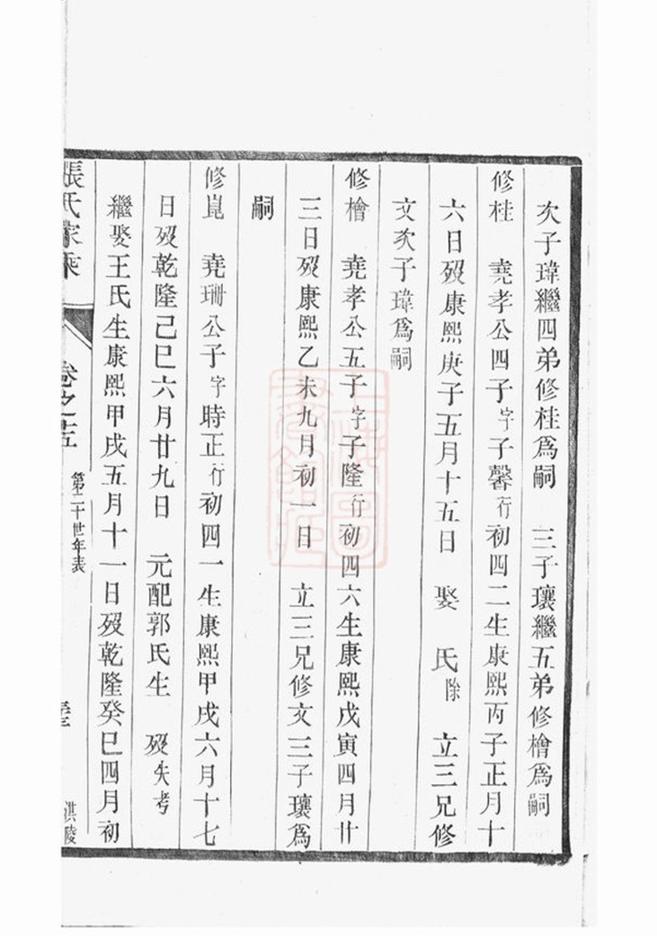 次子瑋繼四弟修桂爲嗣 三子瓖繼五弟修檜爲嗣
修桂 堯孝公四子字子馨行初四二生康熙丙子正月十
六日歿康熙庚子五月十五日 娶 氏除 立三兄修
文次子瑋爲嗣
修檜 堯孝公五子字子隆行初四六生康熙戊寅四月廿
三日歿康熙乙未九月初一日 立三兄修文三子瓖爲
嗣
修崑 堯珊公子字時正行初四一生康熙甲戌六月十七
日歿乾隆己巳六月廿九日 元配郭氏生 歿失考
繼娶王氏生康熙甲戌五月十一日歿乾隆癸巳四月初
張氏家乘
卷之十五
第二十世年表
淇陵